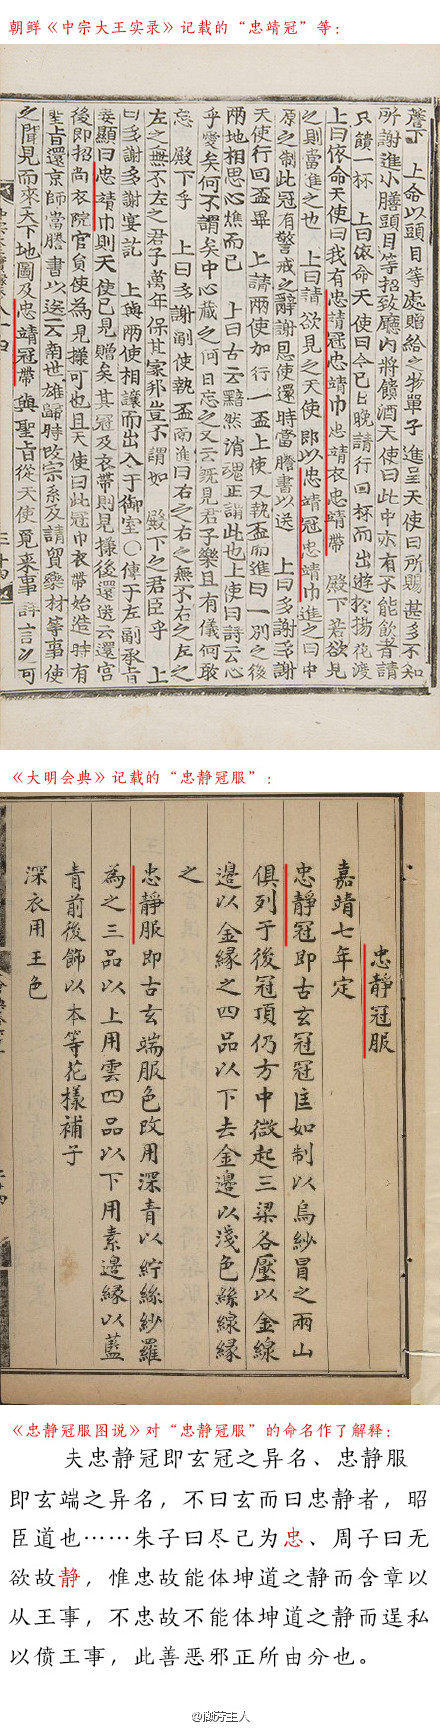 朝鲜《中宗大王实录》记载的“忠靖冠”等：
上命以頭目等處贈給之物單子進呈天使曰所賜甚多不知
所謝進小膳頭目等招致廳内將饋酒天使曰此中亦有不能飲者請
只饋一杯 上曰依命天使曰今已日晚請行回杯而出遊於揚花渡
上曰依命天使曰我有忠靖冠忠靖巾忠靖衣忠靖帶 殿下若欲見
之則當進之也 上曰請欲見之天使即以忠靖冠忠靖巾進之曰中
原之制此冠有警戒之辭謝恩使還時當謄書以送 上曰多謝多謝
天使行回盃畢 上請兩使加行一盃上使又執盃而進曰一別之後
兩地相思心燋而已 上曰古云黯然消魂正謂此也上使曰詩云心
乎愛矣何不謂矣中心藏之何日忘之又云旣見君子樂且有儀何敢
忘 殿下乎 上曰多謝副使執盃而進曰右之右之無不右之左之
左之無不左之君子萬年保其家邦豈 謂如 殿下之君臣乎 上
曰多謝多謝宴訖 上與兩使相讓而出入于御室○傳于左副承旨
顯曰忠靖巾則天使已見贈矣其冠及衣帶則見樣後還送云還宮
後即招尚衣院官員使爲見樣可也且天使曰此冠巾衣帶始造時有
聖旨還京師當謄書以送云南世雄歸時改宗系及請貿藥材等事使
之聞見而來天下地圖及忠靖冠帶與聖旨從天使覓來事詳言以可
《大明会典》记载的“忠静冠服”：
忠靜冠服
嘉靖七年定
忠靜冠即古玄冠冠匡如制以烏紗冒之兩山
俱列于後冠頂仍方中微起三梁各壓以金線
邊以金緣之四品以下去金邊以淺色絲線緣
之
忠靜服即古玄端服色改用深青以紵絲紗羅
為之三品以上用雲四品以下用素邊緣以藍
青前後飾以本等花樣補子
深衣用玉色
《忠静冠服图说》对“忠静冠服”的命名作了解释：
夫忠静冠即玄冠之异名、忠静服
即玄端之异名，不曰玄而曰忠静者，昭
臣道也……朱子曰尽己为忠、周子曰无
欲故静，惟忠故能体坤道之静而含章以
从王事，不忠故不能体坤道之静而逞私
以偾王事，此善恶邪正所由分也。